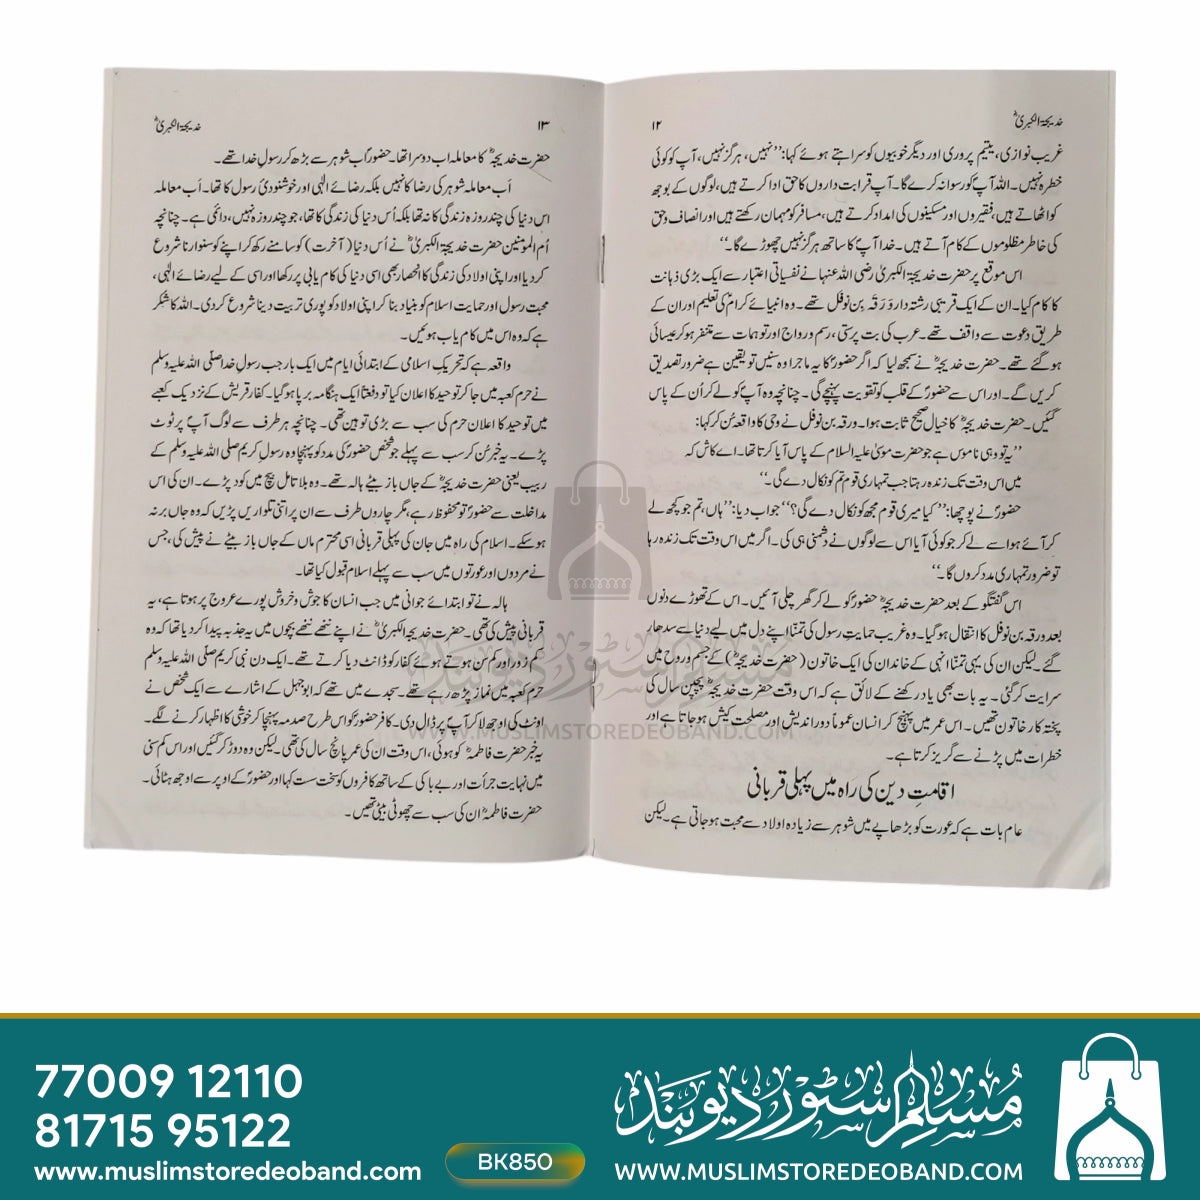 خدیجۃ الکبریٰؓ
۱۲
غریب نوازی، یتیم پروری اور دیگر خوبیوں کو سراہتے ہوئے کہا: ’’نہیں، ہرگز نہیں، آپ کو کوئی
خطرہ نہیں۔ اللہ آپؐ کو رسوا نہ کرے گا۔ آپ قرابت داروں کا حق ادا کرتے ہیں، لوگوں کے بوجھ
کو اٹھاتے ہیں، فقیروں اور مسکینوں کی امداد کرتے ہیں، مسافر کو مہمان رکھتے ہیں اور انصاف و حق
کی خاطر مظلوموں کے کام آتے ہیں۔ خدا آپؐ کا ساتھ ہرگز نہیں چھوڑے گا۔‘‘
اس موقع پر حضرت خدیجۃ الکبریٰ رضی اللہ عنہا نے نفسیاتی اعتبار سے ایک بڑی ذہانت
کا کام کیا۔ ان کے ایک قریبی رشتہ دار وَرَقہ بِن نوفل تھے۔ وہ انبیائے کرامؑ کی تعلیم اور ان کے
طریق دعوت سے واقف تھے۔ عرب کی بت پرستی، رسم و رواج اور توہمات سے متنفر ہو کر عیسائی
ہو گئے تھے۔ حضرت خدیجہؓ نے سمجھ لیا کہ اگر حضورؐ کا یہ ماجرا وہ سنیں تو یقین ہے ضرور تصدیق
کریں گے۔ اور اس سے حضورؐ کے قلب کو تقویت پہنچے گی۔ چنانچہ وہ آپؐ کو لے کر اُن کے پاس
گئیں۔ حضرت خدیجہؓ کا خیال صحیح ثابت ہوا۔ ورقہ بن نوفل نے وحی کا واقعہ سُن کر کہا:
’’یہ تو وہی ناموس ہے جو حضرت موسیٰ علیہ السلام کے پاس آیا کرتا تھا۔ اے کاش کہ
میں اس وقت تک زندہ رہتا جب تمہاری قوم تم کو نکال دے گی۔‘‘
حضورؐ نے پوچھا: ’’کیا میری قوم مجھ کو نکال دے گی؟‘‘ جواب دیا: ’’ہاں، تم جو کچھ لے
کر آئے ہو اسے لے کر جو کوئی آیا اس سے لوگوں نے دشمنی ہی کی۔ اگر میں اس وقت تک زندہ رہا
تو ضرور تمہاری مدد کروں گا۔‘‘
اس گفتگو کے بعد حضرت خدیجہؓ حضورؐ کو لے کر گھر چلی آئیں۔ اس کے تھوڑے دنوں
بعد ورقہ بن نوفل کا انتقال ہو گیا۔ وہ غریب حمایتِ رسول کی تمنّا اپنے دل میں لیے دنیا سے سدھار
گئے۔ لیکن ان کی یہی تمنّا انہی کے خاندان کی ایک خاتون (حضرت خدیجہؓ) کے جسم و روح میں
سرایت کر گئی۔ یہ بات بھی یاد رکھنے کے لائق ہے کہ اس وقت حضرت خدیجہؓ پچپن سال کی
پختہ کار خاتون تھیں۔ اس عمر میں پہنچ کر انسان عموماً دور اندیش اور مصلحت کیش ہو جاتا ہے اور
خطرات میں پڑنے سے گریز کرتا ہے۔
اقامتِ دین کی راہ میں پہلی قربانی
عام بات ہے کہ عورت کو بڑھاپے میں شوہر سے زیادہ اولاد سے محبت ہو جاتی ہے۔ لیکن
خدیجۃ الکبریٰؓ
۱۳
حضرت خدیجہؓ کا معاملہ اب دوسرا تھا۔ حضورؐ اب شوہر سے بڑھ کر رسولِ خدا تھے۔
اَب معاملہ شوہر کی رضا کا نہیں بلکہ رضائے الٰہی اور خوشنودیٔ رسول کا تھا۔ اَب معاملہ
اِس دنیا کی چند روزہ زندگی کا نہ تھا بلکہ اُس دنیا کی زندگی کا تھا، جو چند روزہ نہیں، دائمی ہے۔ چنانچہ
اُم المومنین حضرت خدیجۃ الکبریٰؓ نے اُس دنیا (آخرت) کو سامنے رکھ کر اپنے کو سنوارنا شروع
کر دیا اور اپنی اولاد کی زندگی کا انحصار بھی اسی دنیا کی کام یابی پر رکھا اور اسی کے لیے رضائے الٰہی،
محبت رسول اور حمایت اسلام کو بنیاد بنا کر اپنی اولاد کو پوری تربیت دینا شروع کر دی۔ اللہ کا شکر
ہے کہ وہ اس میں کام یاب ہوئیں۔
واقعہ ہے کہ تحریک اسلامی کے ابتدائی ایام میں ایک بار جب رسولِ خدا صلی اللہ علیہ وسلم
نے حرم کعبہ میں جا کر توحید کا اعلان کیا تو دفعتاً ایک ہنگامہ برپا ہو گیا۔ کفار قریش کے نزدیک کعبے
میں توحید کا اعلان حرم کی سب سے بڑی توہین تھی۔ چنانچہ ہر طرف سے لوگ آپؐ پر ٹوٹ
پڑے۔ یہ خبر سُن کر سب سے پہلے جو شخص حضورؐ کی مدد کو پہنچا وہ رسول کریم صلی اللہ علیہ وسلم کے
ربیب یعنی حضرت خدیجہؓ کے جاں باز بیٹے ہالہ تھے۔ وہ بلا تامل بیچ میں کود پڑے۔ ان کی اس
مداخلت سے حضورؐ تو محفوظ رہے، مگر چاروں طرف سے ان پر اتنی تلواریں پڑیں کہ وہ جاں بر نہ
ہو سکے۔ اسلام کی راہ میں جان کی پہلی قربانی اسی محترم ماں کے جاں باز بیٹے نے پیش کی، جس
نے مردوں اور عورتوں میں سب سے پہلے اسلام قبول کیا تھا۔
ہالہ نے تو ابتدائے جوانی میں جب انسان کا جوش و خروش پورے عروج پر ہوتا ہے، یہ
قربانی پیش کی تھی۔ حضرت خدیجۃ الکبریٰؓ نے اپنے ننھے ننھے بچوں میں یہ جذبہ پیدا کر دیا تھا کہ وہ
کم زور اور کم سن ہوتے ہوئے کفار کو ڈانٹ دیا کرتے تھے۔ ایک دن نبی کریم صلی اللہ علیہ وسلم
حرم کعبہ میں نماز پڑھ رہے تھے۔ سجدے میں تھے کہ ابو جہل کے اشارے سے ایک شخص نے
اونٹ کی اوجھ لا کر آپؐ پر ڈال دی۔ کافر حضورؐ کو اس طرح صدمہ پہنچا کر خوشی کا اظہار کرنے لگے۔
یہ خبر حضرت فاطمہؓ کو ہوئی، اس وقت ان کی عمر پانچ سال کی تھی۔ لیکن وہ دوڑ کر گئیں اور اس کم سنی
میں نہایت جرأت اور بے باکی کے ساتھ کافروں کو سخت سست کہا اور حضورؐ کے اوپر سے اوجھ ہٹائی۔
حضرت فاطمہؓ ان کی سب سے چھوٹی بیٹی تھیں۔
مسلم سٹور دیوبند
WWW.MUSLIMSTOREDEOBAND.COM
77009 12110
81715 95122
www.muslimstoredeoband.com
BK850
مسلم سٹور دیوبند
WWW.MUSLIMSTOREDEOBAND.COM